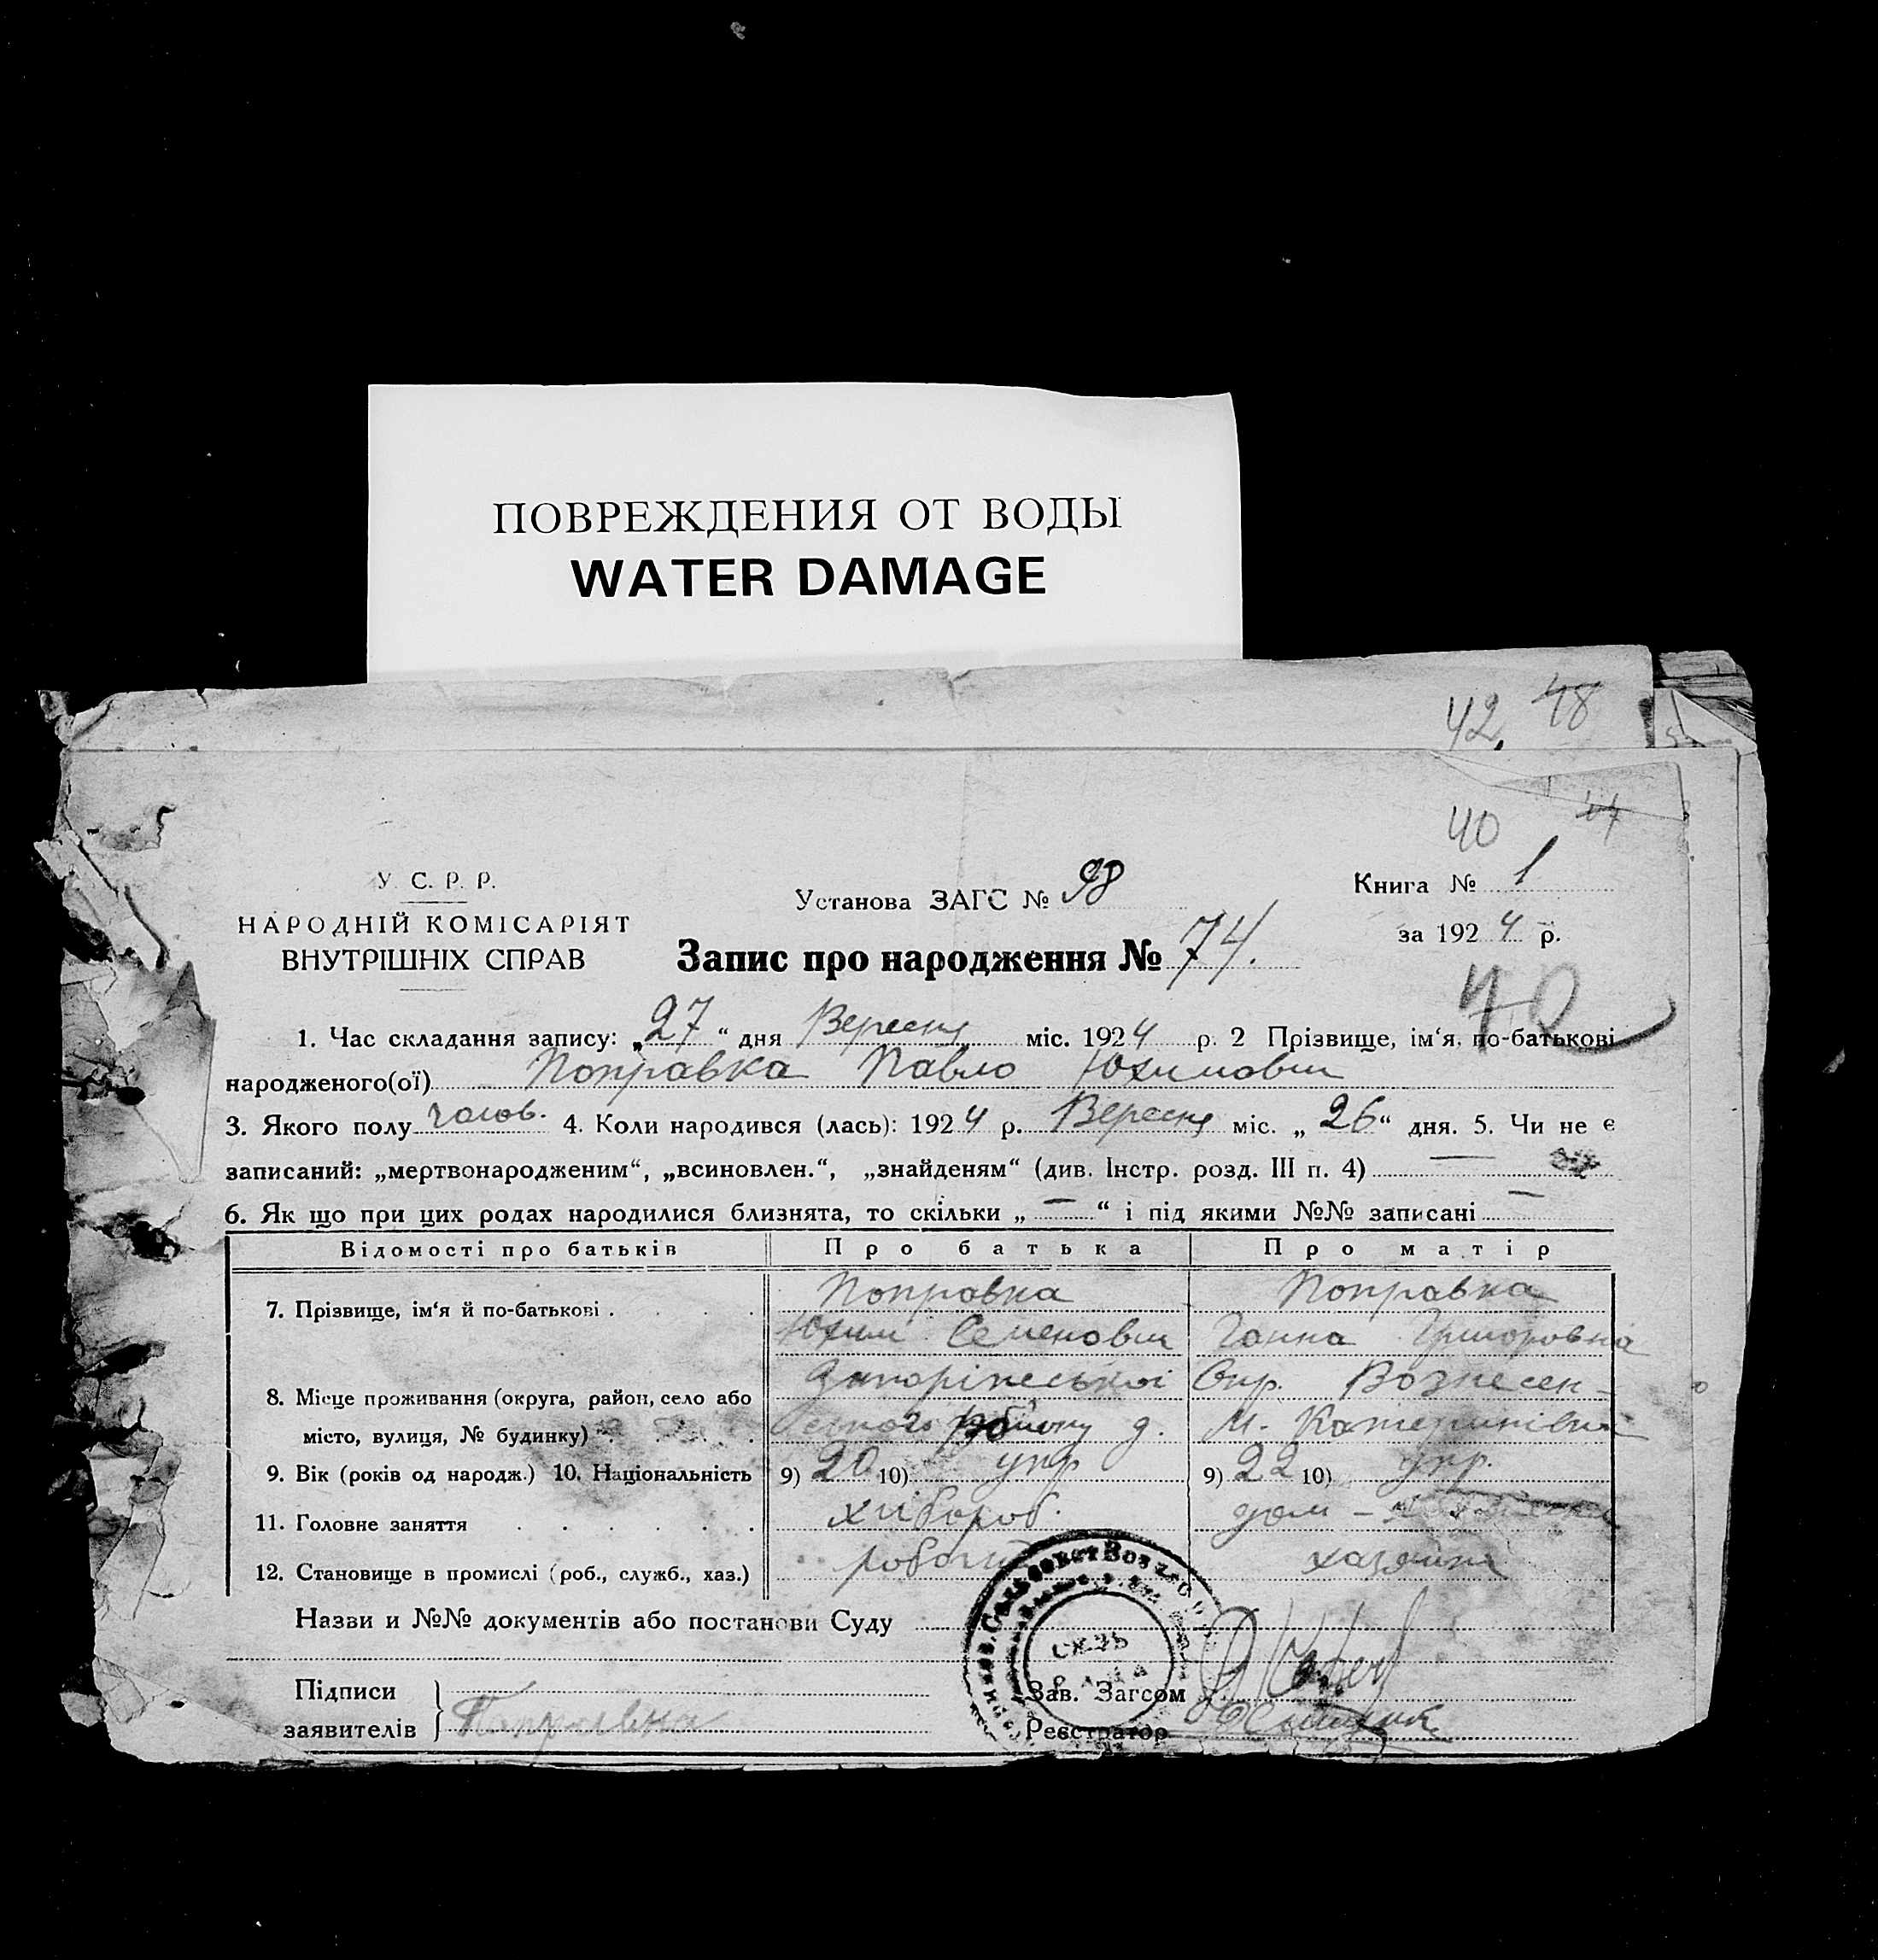 ПОВРЕЖДЕНИЯ ОТ ВОДЫ
WATER DAMAGE
42. 48
40
У. С. Р. Р.
НАРОДНІЙ КОМІСАРІЯТ
ВНУТРІШНІХ СПРАВ
Установа ЗАГС № 98
Запис про народження № 74.
Книга № 1
за 1924 р.
40
1. Час складання запису: „27“ дня Вересня міс. 1924 р. 2 Прізвище, ім‘я, по-батькові
народженого(ої) Поправка Павло Юхимович
3. Якого полу чолов. 4. Коли народився (лась): 1924 р. Вересня міс. „26“ дня. 5. Чи не є
записаний: „мертвонародженим“, „всиновлен.“, „знайденям“ (див. Інстр. розд. III п. 4) —
6. Як що при цих родах народилися близнята, то скільки „—“ і під якими №№ записані —
Відомості про батьків Про батька Про матір
7. Прізвище, ім‘я й по-батькові Поправка Поправка
Юхим Семенович Ганна Григоровна
8. Місце проживання (округа, район, село або Запоріжської Окр. Вознесен-
місто, вулиця, № будинку) району д. М. Катеринівка
9. Вік (років од народж.) 10. Національність 9) 20 10) укр 9) 22 10) укр.
11. Головне заняття хлібороб. дом -
12. Становище в промислі (роб., служб., хаз.) робочий хазяйка
Назви и №№ документів або постанови Суду
Підписи
заявителів Поправка
Зав. Загсом
Реєстратор